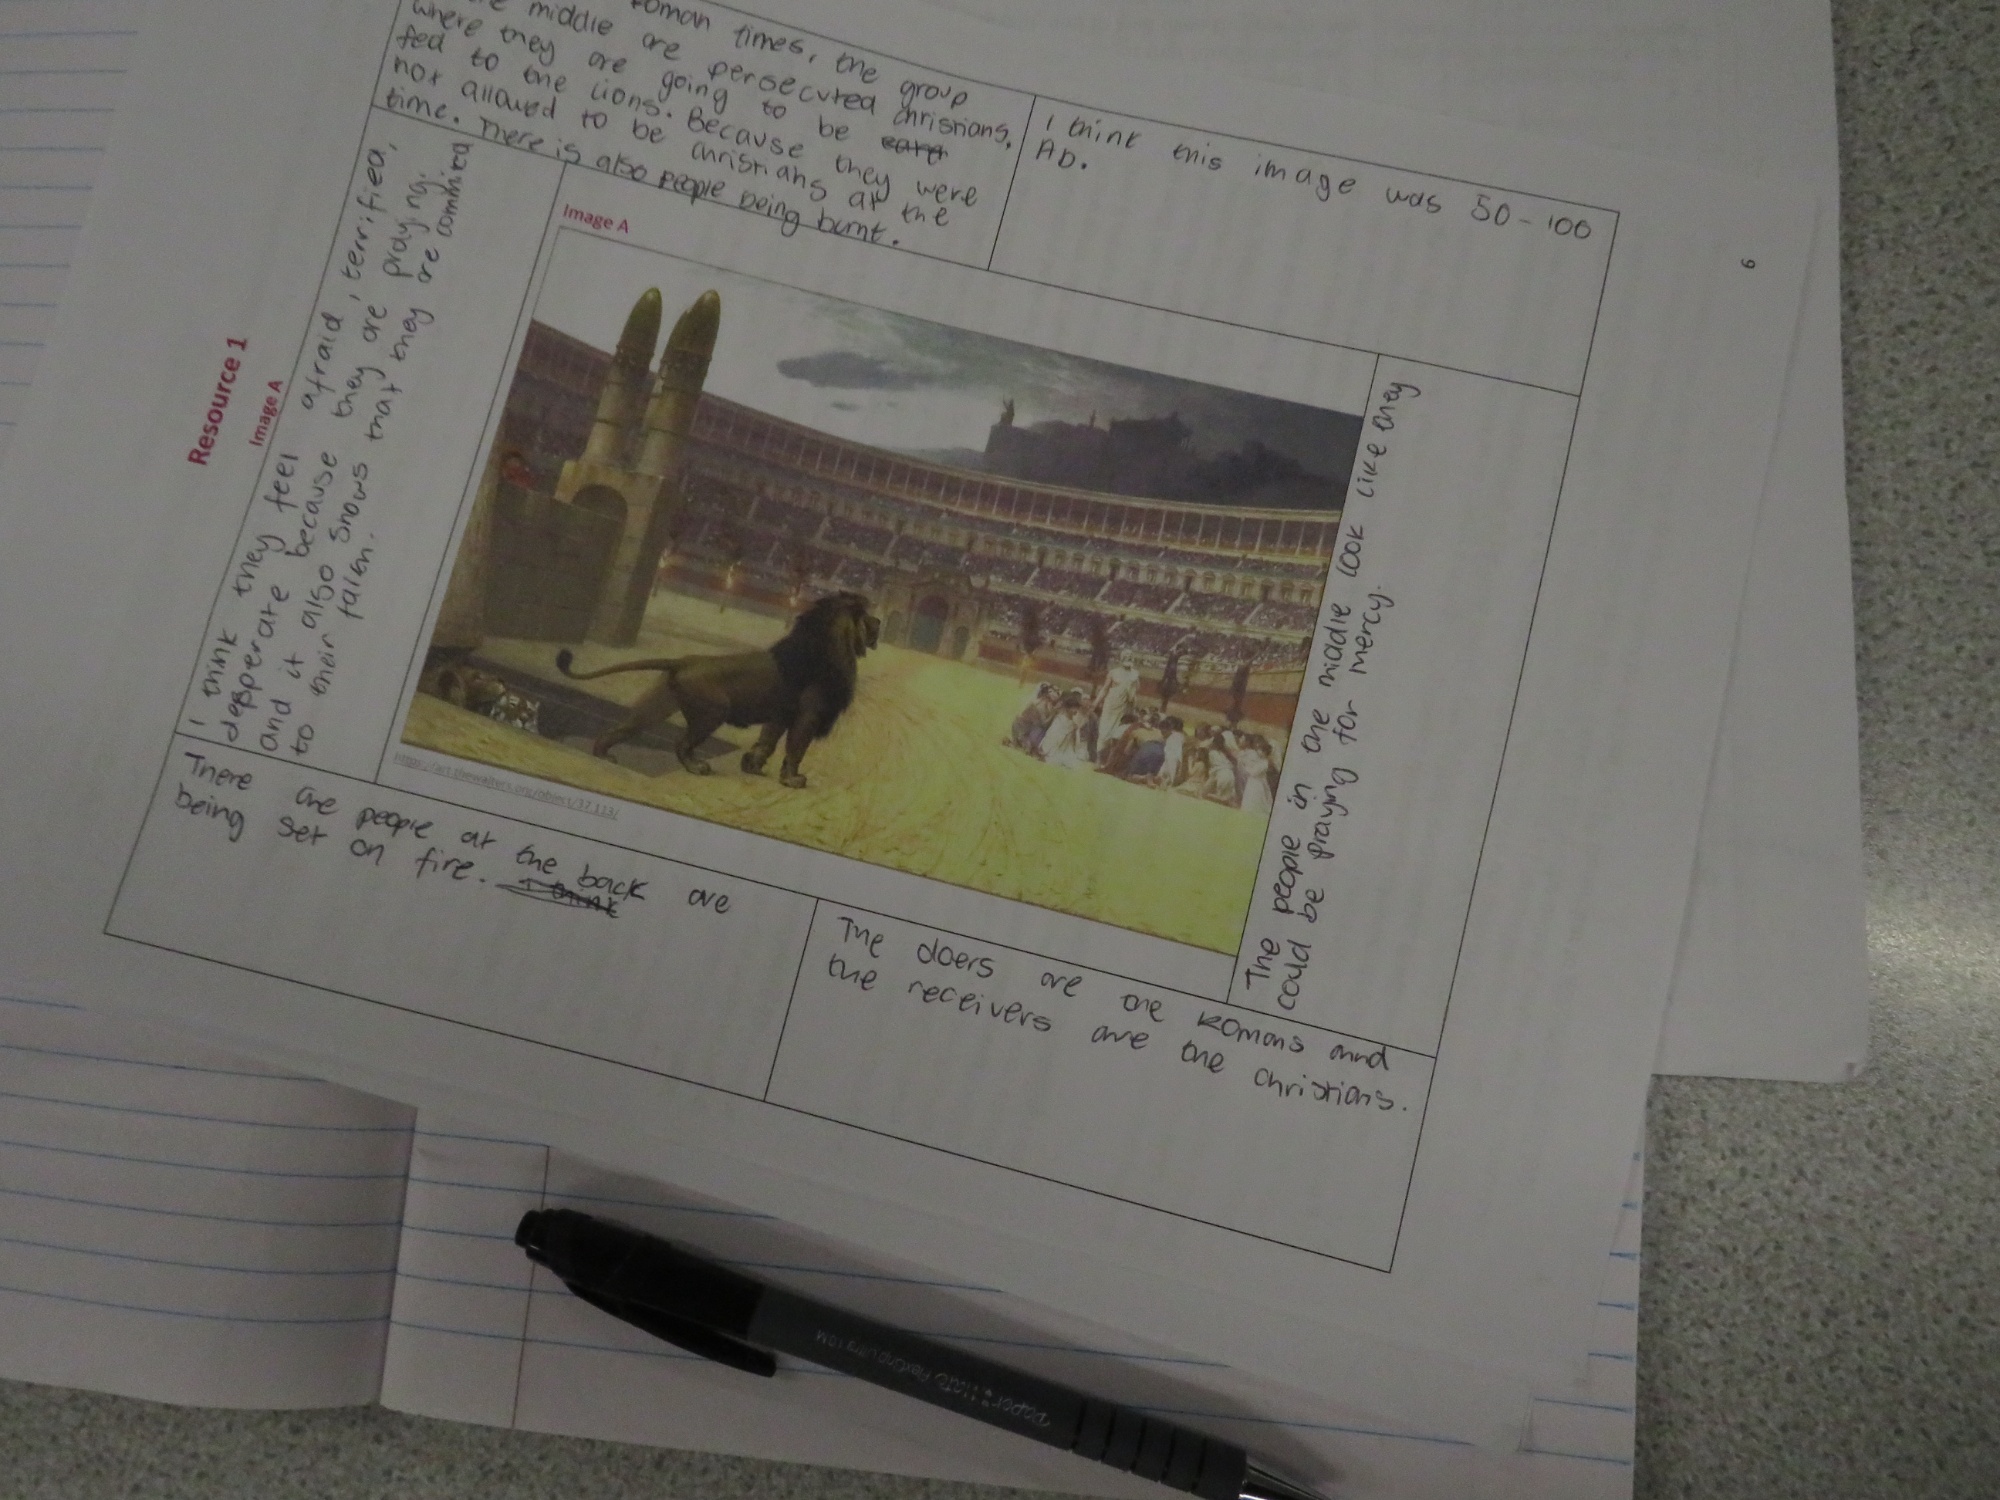 Resource 1
Image A
Roman times, the group
the middle are persecuted christians,
where they are going to be
fed to the lions. Because they were
not allowed to be christians at the
time. There is also people being burnt.
I think this image was 50 - 100
AD.
6
I think they feel afraid, terrified,
desperate because they are praying.
and it also shows that they are commited
to their faith.
Image A
https://art.thewalters.org/object/37.113/
The people in the middle look like they
could be praying for mercy.
There are people at the back are
being set on fire. I think
The doers are the Romans and
the receivers are the christians.
Paper Mate FlexGrip Ultra 1.0M